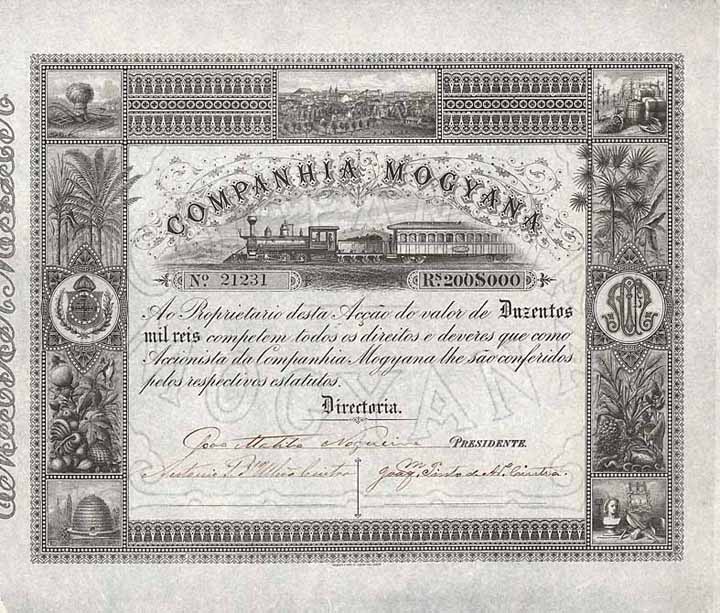 COMPANHIA MOGYANA
Nº 21231
RS 200$000
Ao Proprietario desta Acção do valor de Duzentos
mil reis competem todos os direitos e deveres que como
Accionista da Companhia Mogyana lhe são conferidos
pelos respectivos estatutos.
Directoria.
PRESIDENTE.